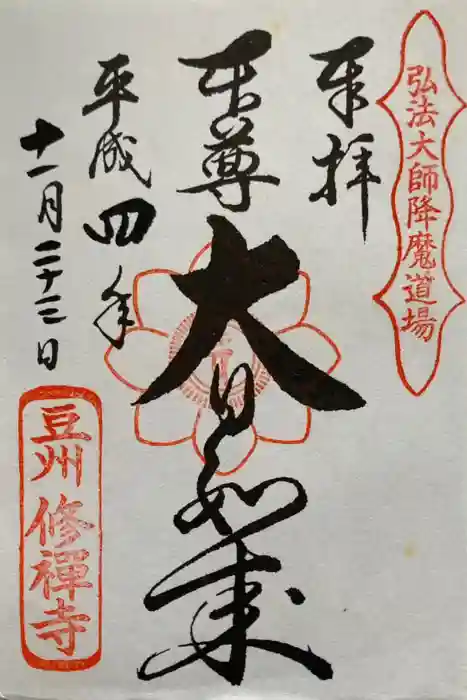 弘法大師降魔道場
奉拝
本尊
大日如来
平成四年
十一月二十三日
豆州 修禅寺